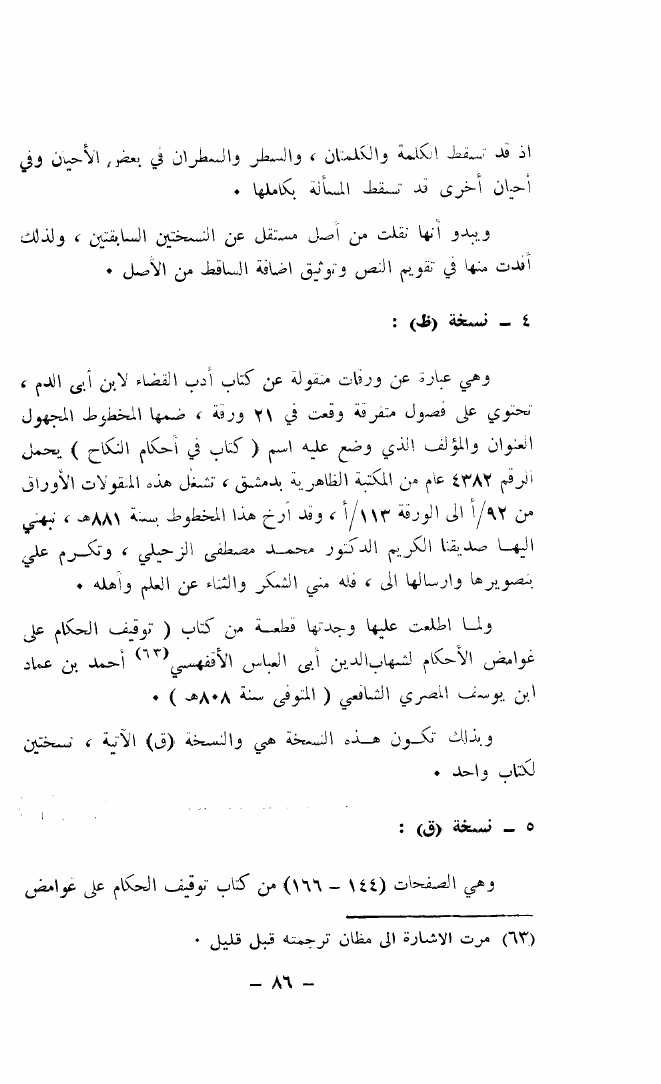 اذ قد تسقط الكلمة والكلمتان ، والسطر والسطران في بعض الأحيان وفي
أحيان أخرى قد تسقط المسألة بكاملها ٠
ويبدو أنها نقلت من أصل مستقل عن النسختين السابقتين ، ولذلك
أفدت منها في تقويم النص وتوثيق اضافة الساقط من الأصل ٠
٤ – نسخة (ظ) :
وهي عبارة عن ورقات منقولة عن كتاب أدب القضاء لابن أبى الدم ،
تحتوي على فصول متفرقة وقعت في ٢١ ورقة ، ضمها المخطوط المجهول
العنوان والمؤلف الذي وضع عليه اسم ( كتاب في أحكام النكاح ) يحمل
الرقم ٤٣٨٢ عام من المكتبة الظاهرية بدمشق ، تشغل هذه المنقولات الأوراق
من ٩٢/أ الى الورقة ١١٣/أ ، وقد أرخ هذا المخطوط بسنة ٨٨١هـ ، نبهني
اليهـا صديقنا الكريم الدكتور محمـد مصطفى الزحيلي ، وتكـرم علي
بتصويرها وارسالها الى ، فله مني الشكر والثناء عن العلم وأهله ٠
ولمـا اطلعت عليها وجدتها قطعـة من كتاب ( توقيف الحكام على
غوامض الأحكام لشهاب‌الدين أبى العباس الأقفهسي(٦٣) أحمد بن عماد
ابن يوسف المصري الشافعي ( المتوفى سنة ٨٠٨هـ ) ٠
وبذلك تكـون هـذه النسخة هي والنسخة (ق) الآتية ، نسختين
لكتاب واحد ٠
٥ – نسخة (ق) :
وهي الصفحات (١٤٤ – ١٦٦) من كتاب توقيف الحكام على غوامض
(٦٣) مرت الاشارة الى مظان ترجمته قبل قليل ٠
– ٨٦ –